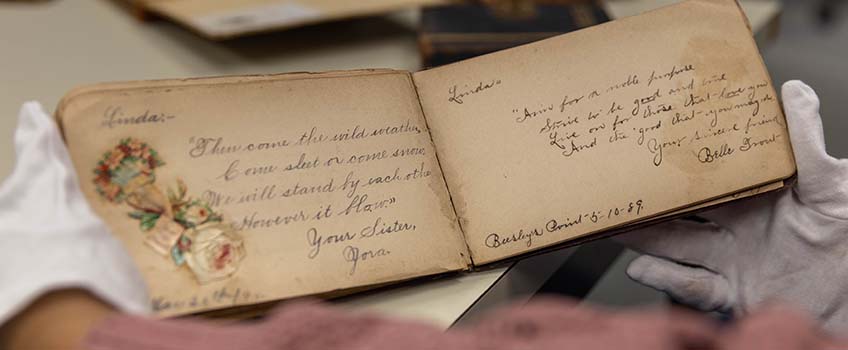 Linda:-
"Then come the wild weather,
Come sleet or come snow,
We will stand by each other
However it blow."
Your Sister,
Linda-
"Aim for a noble purpose
Strive to be good and true
Live on for those that love you
And the good that you may do
Your sincere friend
Belle Trout-
Beesley's Point-5-10-89.